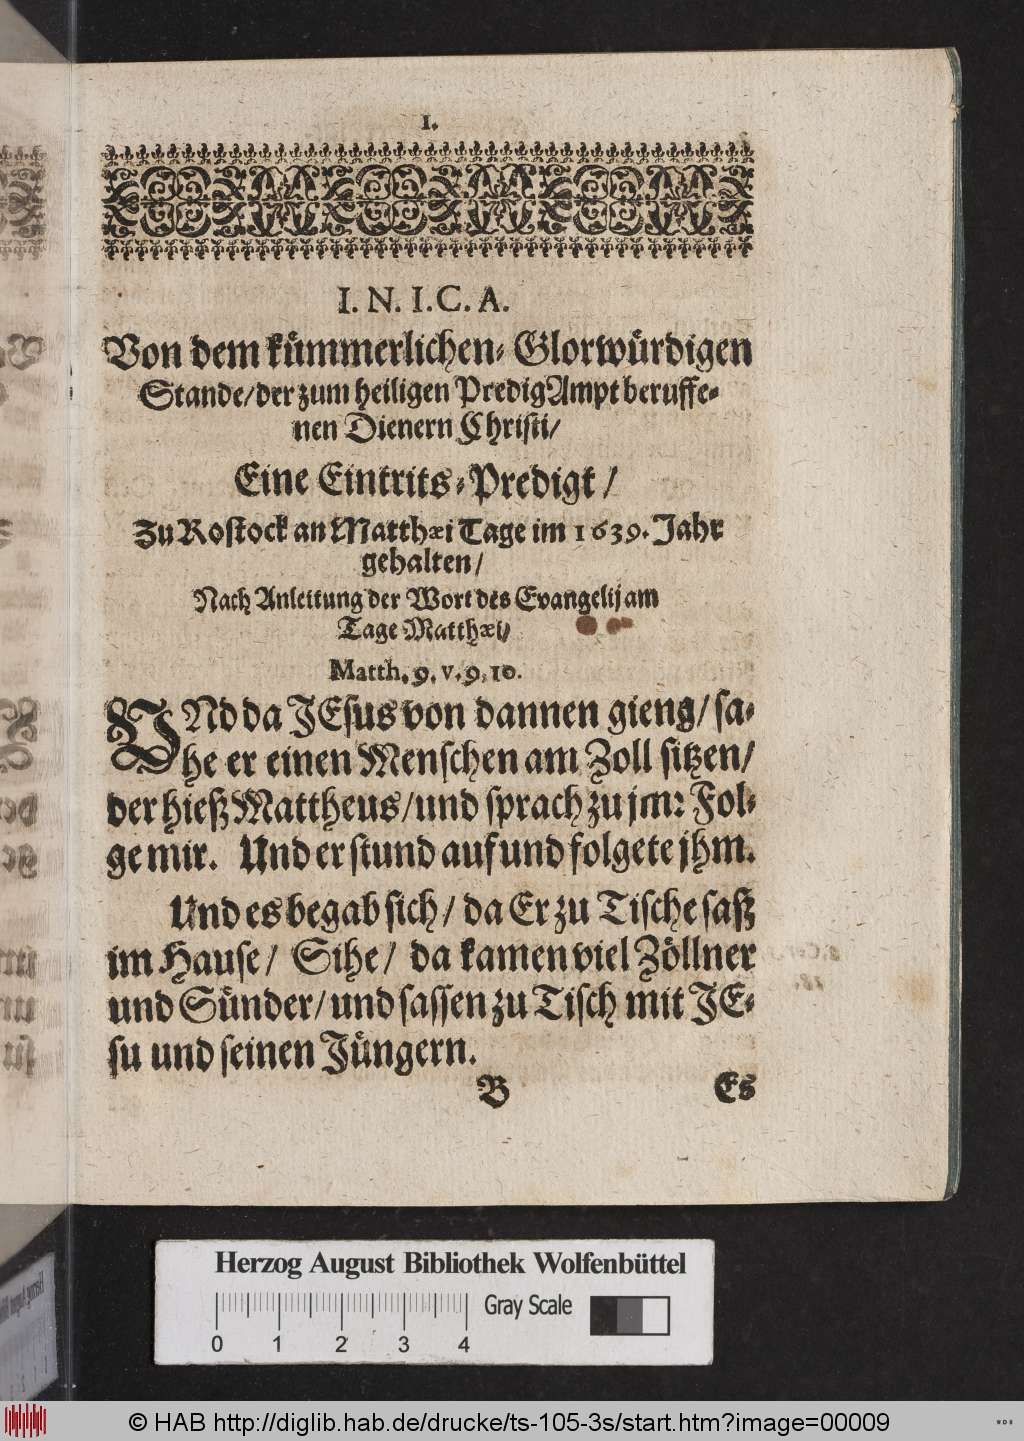 I.
I. N. I. C. A.
Von dem kümmerlichen-Glorwürdigen
Stande/der zum heiligen PredigAmpt beruffe-
nen Dienern Christi/
Eine Eintrits-Predigt/
Zu Rostock an Matthæi Tage im 1639. Jahr
gehalten/
Nach Anleitung der Wort des Evangelij am
Tage Matthæi/
Matth. 9. v. 9. 10.
UNd da JEsus von dannen gieng/ sa-
he er einen Menschen am Zoll sitzen/
der hieß Mattheus/und sprach zu jm: Fol-
ge mir. Und er stund auf und folgete jhm.
Und es begab sich/ da Er zu Tische saß
im Hause/ Sihe/ da kamen viel Zöllner
und Sünder/und sassen zu Tisch mit JE-
su und seinen Jüngern.
B Es
Herzog August Bibliothek Wolfenbüttel
Gray Scale
0 1 2 3 4
© HAB http://diglib.hab.de/drucke/ts-105-3s/start.htm?image=00009